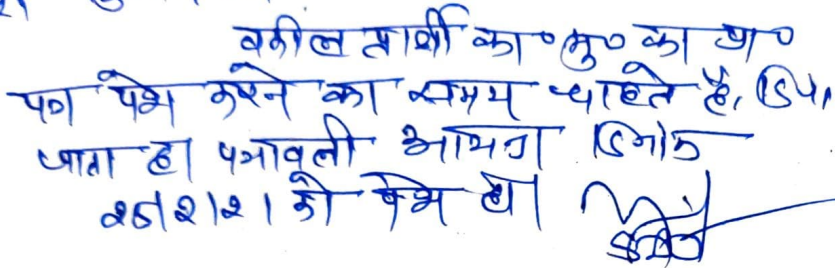 वकील प्रार्थी का०मु० का प्रा०
पत्र पेश करने का समय चाहते है, दिया
जाता है। पत्रावली आयन्दा दिनांक
25/2/21 को पेश हो।